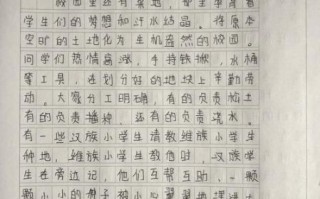 校园里还有菜地，那里事着着
学生们的梦想和汗水结晶。将原本
空旷的土地化为生机盎然的校园。
同学们热情高涨，手持铁锹、水桶
等工具，在划分好的地块上辛勤劳
动。大家分工明确，有的负责松土
有的负责播种，还有的负责浇水。
有一些汉族小学生请教维族小学生
种地，维族小学生教他时，汉族学
生在旁边记，他们互帮互助、一颗
颗小小的种子被小心翼翼地